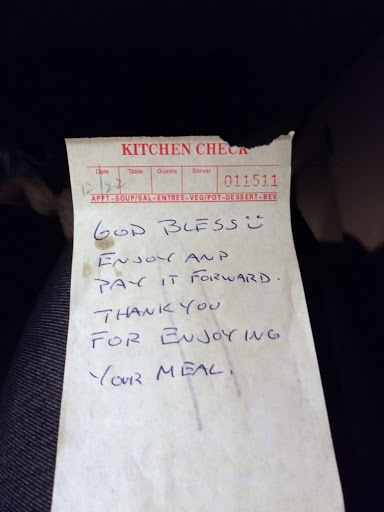 KITCHEN CHECK
Date Table Guests Server
12/22 011511
APPT-SOUP/SAL-ENTREE-VEG/POT-DESSERT-BEV
GOD BLESS
ENJOY AND
PAY IT FORWARD.
THANK YOU
FOR ENJOYING
YOUR MEAL.